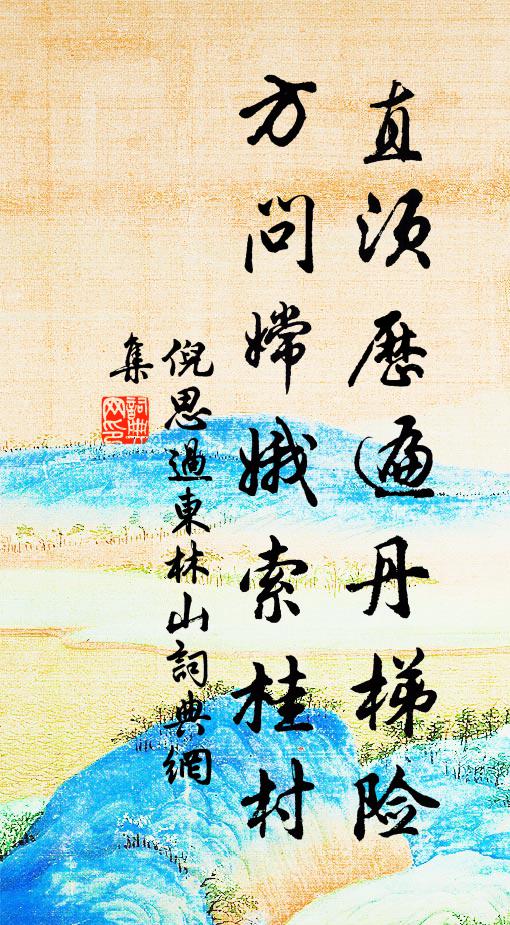 直须历遍丹梯险
方问嫦娥索桂村
倪思過東林山詞典網
集
詞典網印